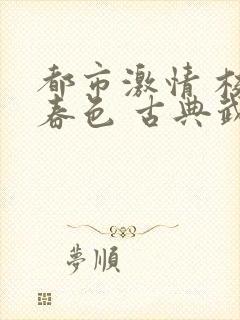 都市激情 校
春色 古典武
夢順